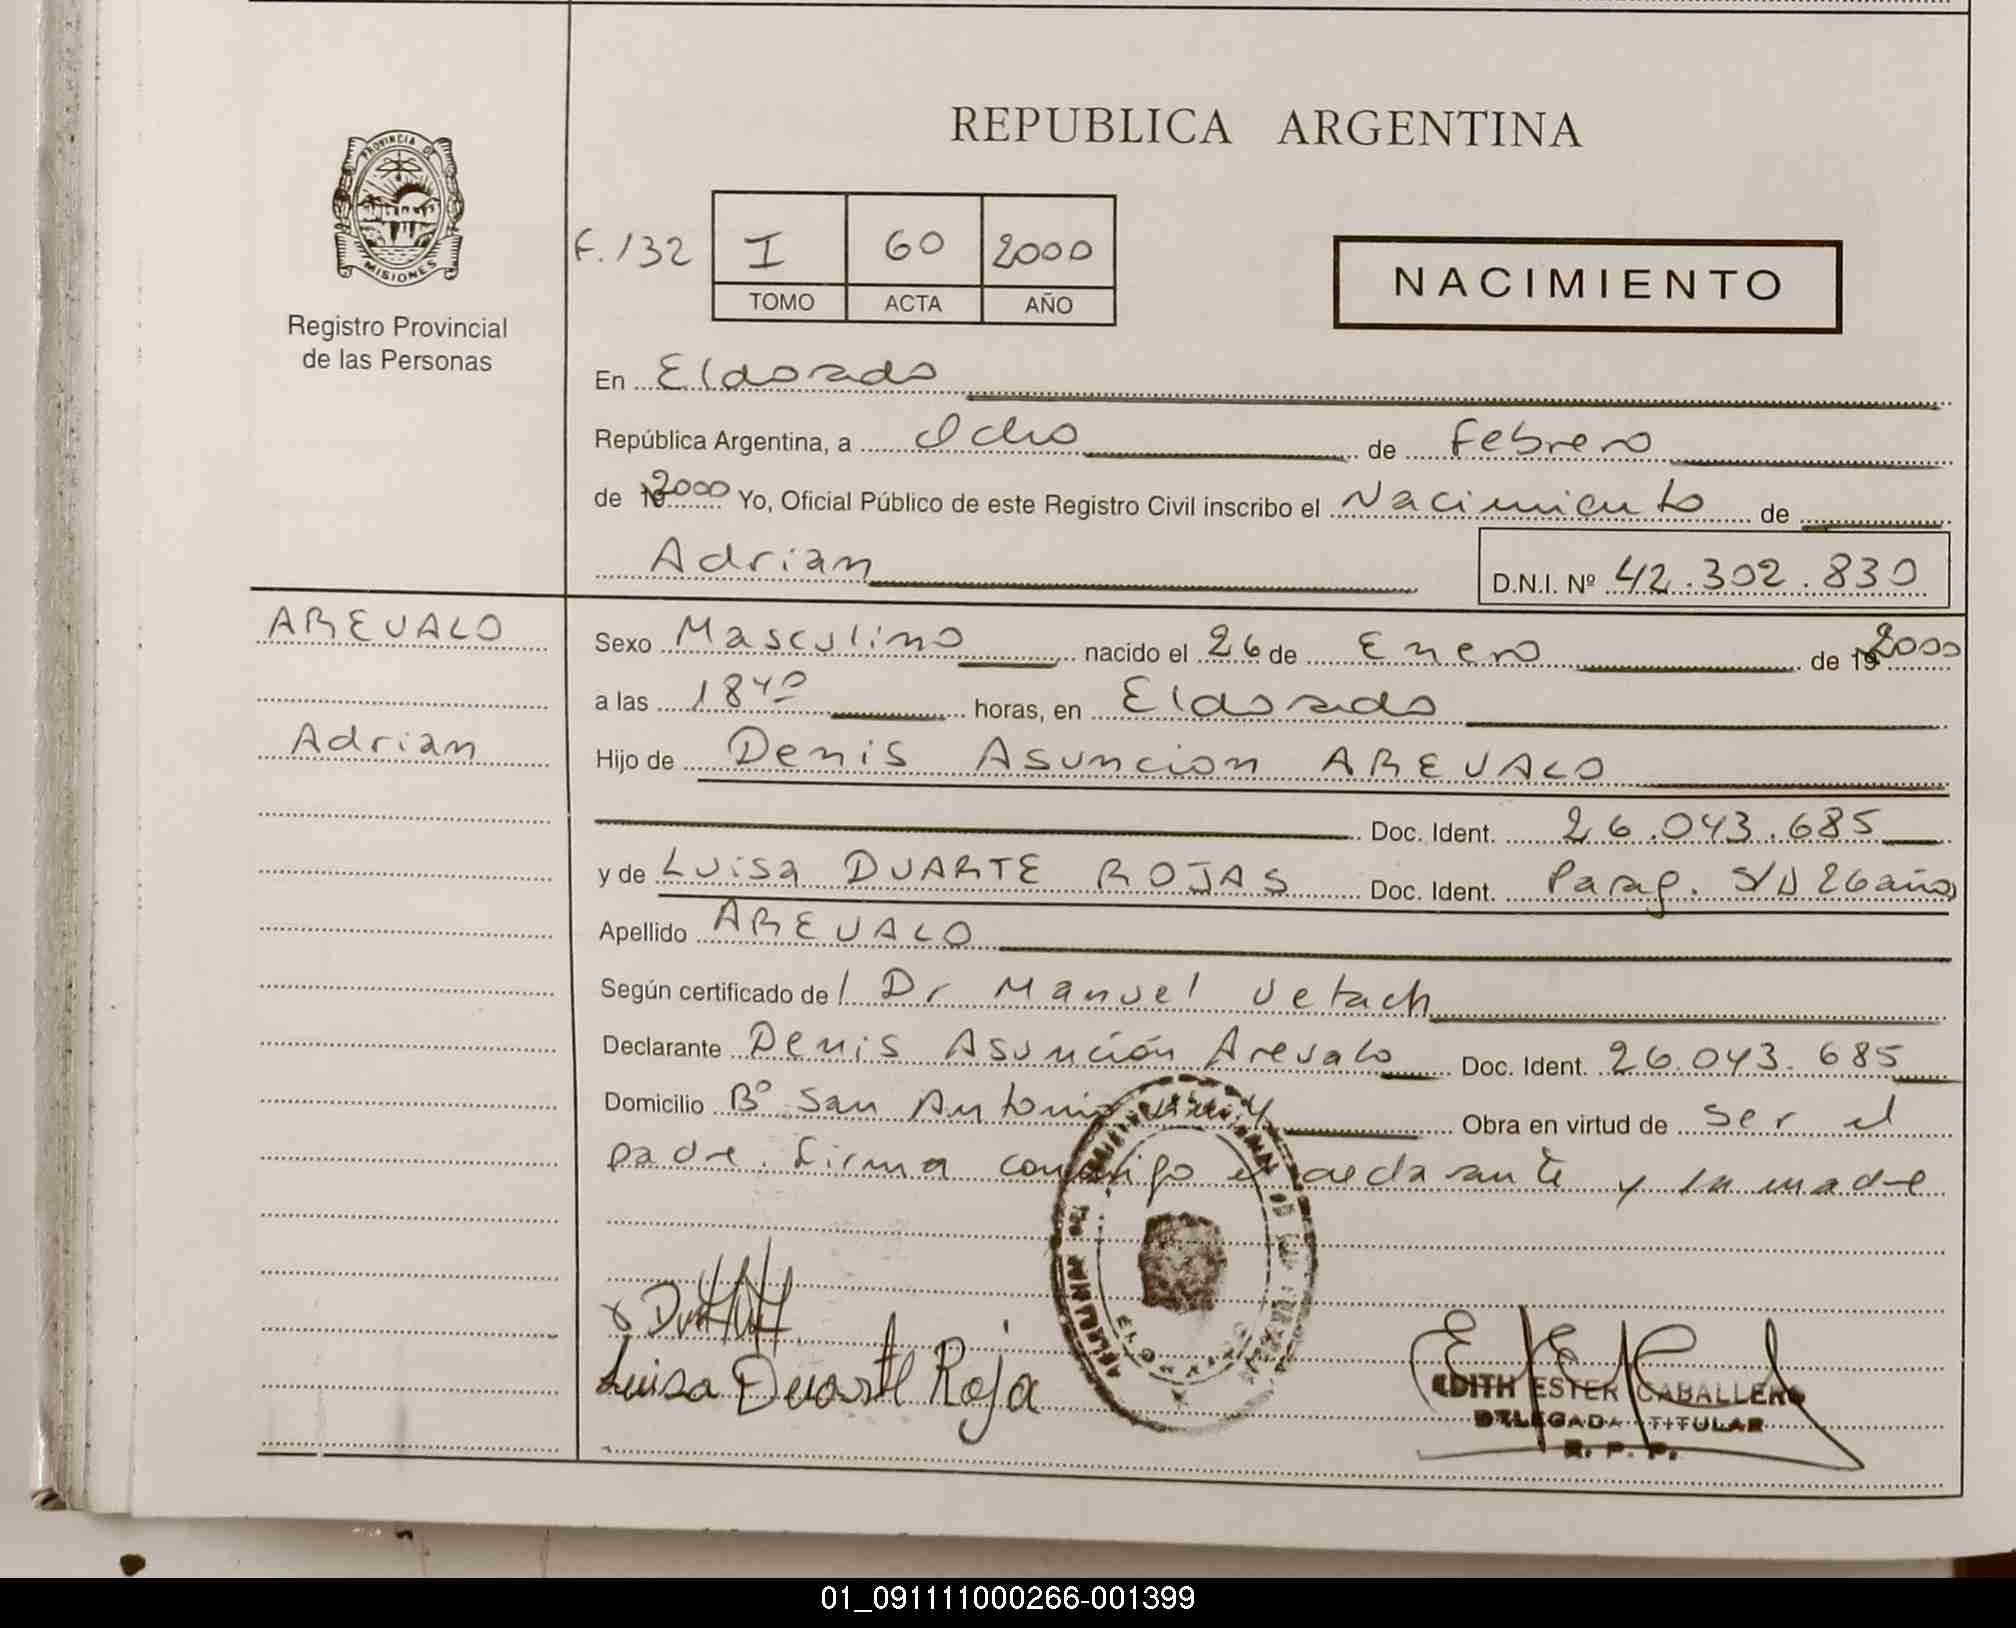 REPUBLICA ARGENTINA
PROVINCIA DE
MISIONES
Registro Provincial
de las Personas
F. 132 I 60 2000
TOMO ACTA AÑO
NACIMIENTO
En Eldorado
República Argentina, a Ocho de Febrero
de 19 2000 Yo, Oficial Público de este Registro Civil inscribo el Nacimiento de
Adrian D.N.I. Nº 42.302.830
AREVALO
Adrian
Sexo Masculino nacido el 26 de Enero de 19 2000
a las 18 40 horas, en Eldorado
Hijo de Denis Asuncion AREVALO
Doc. Ident. 26.043.685
y de Luisa DUARTE ROJAS Doc. Ident. Parag. S/D 26 años
Apellido AREVALO
Según certificado de l Dr Manuel Vetach
Declarante Denis Asunción Arevalo Doc. Ident. 26.043.685
Domicilio Bº San Antonio Obra en virtud de ser el
padre. Firma conmigo el declarante y la madre
Luisa Duarte Roja
EDITH ESTER CABALLERO
DELEGADA TITULAR
R. P. P.
01_091111000266-001399